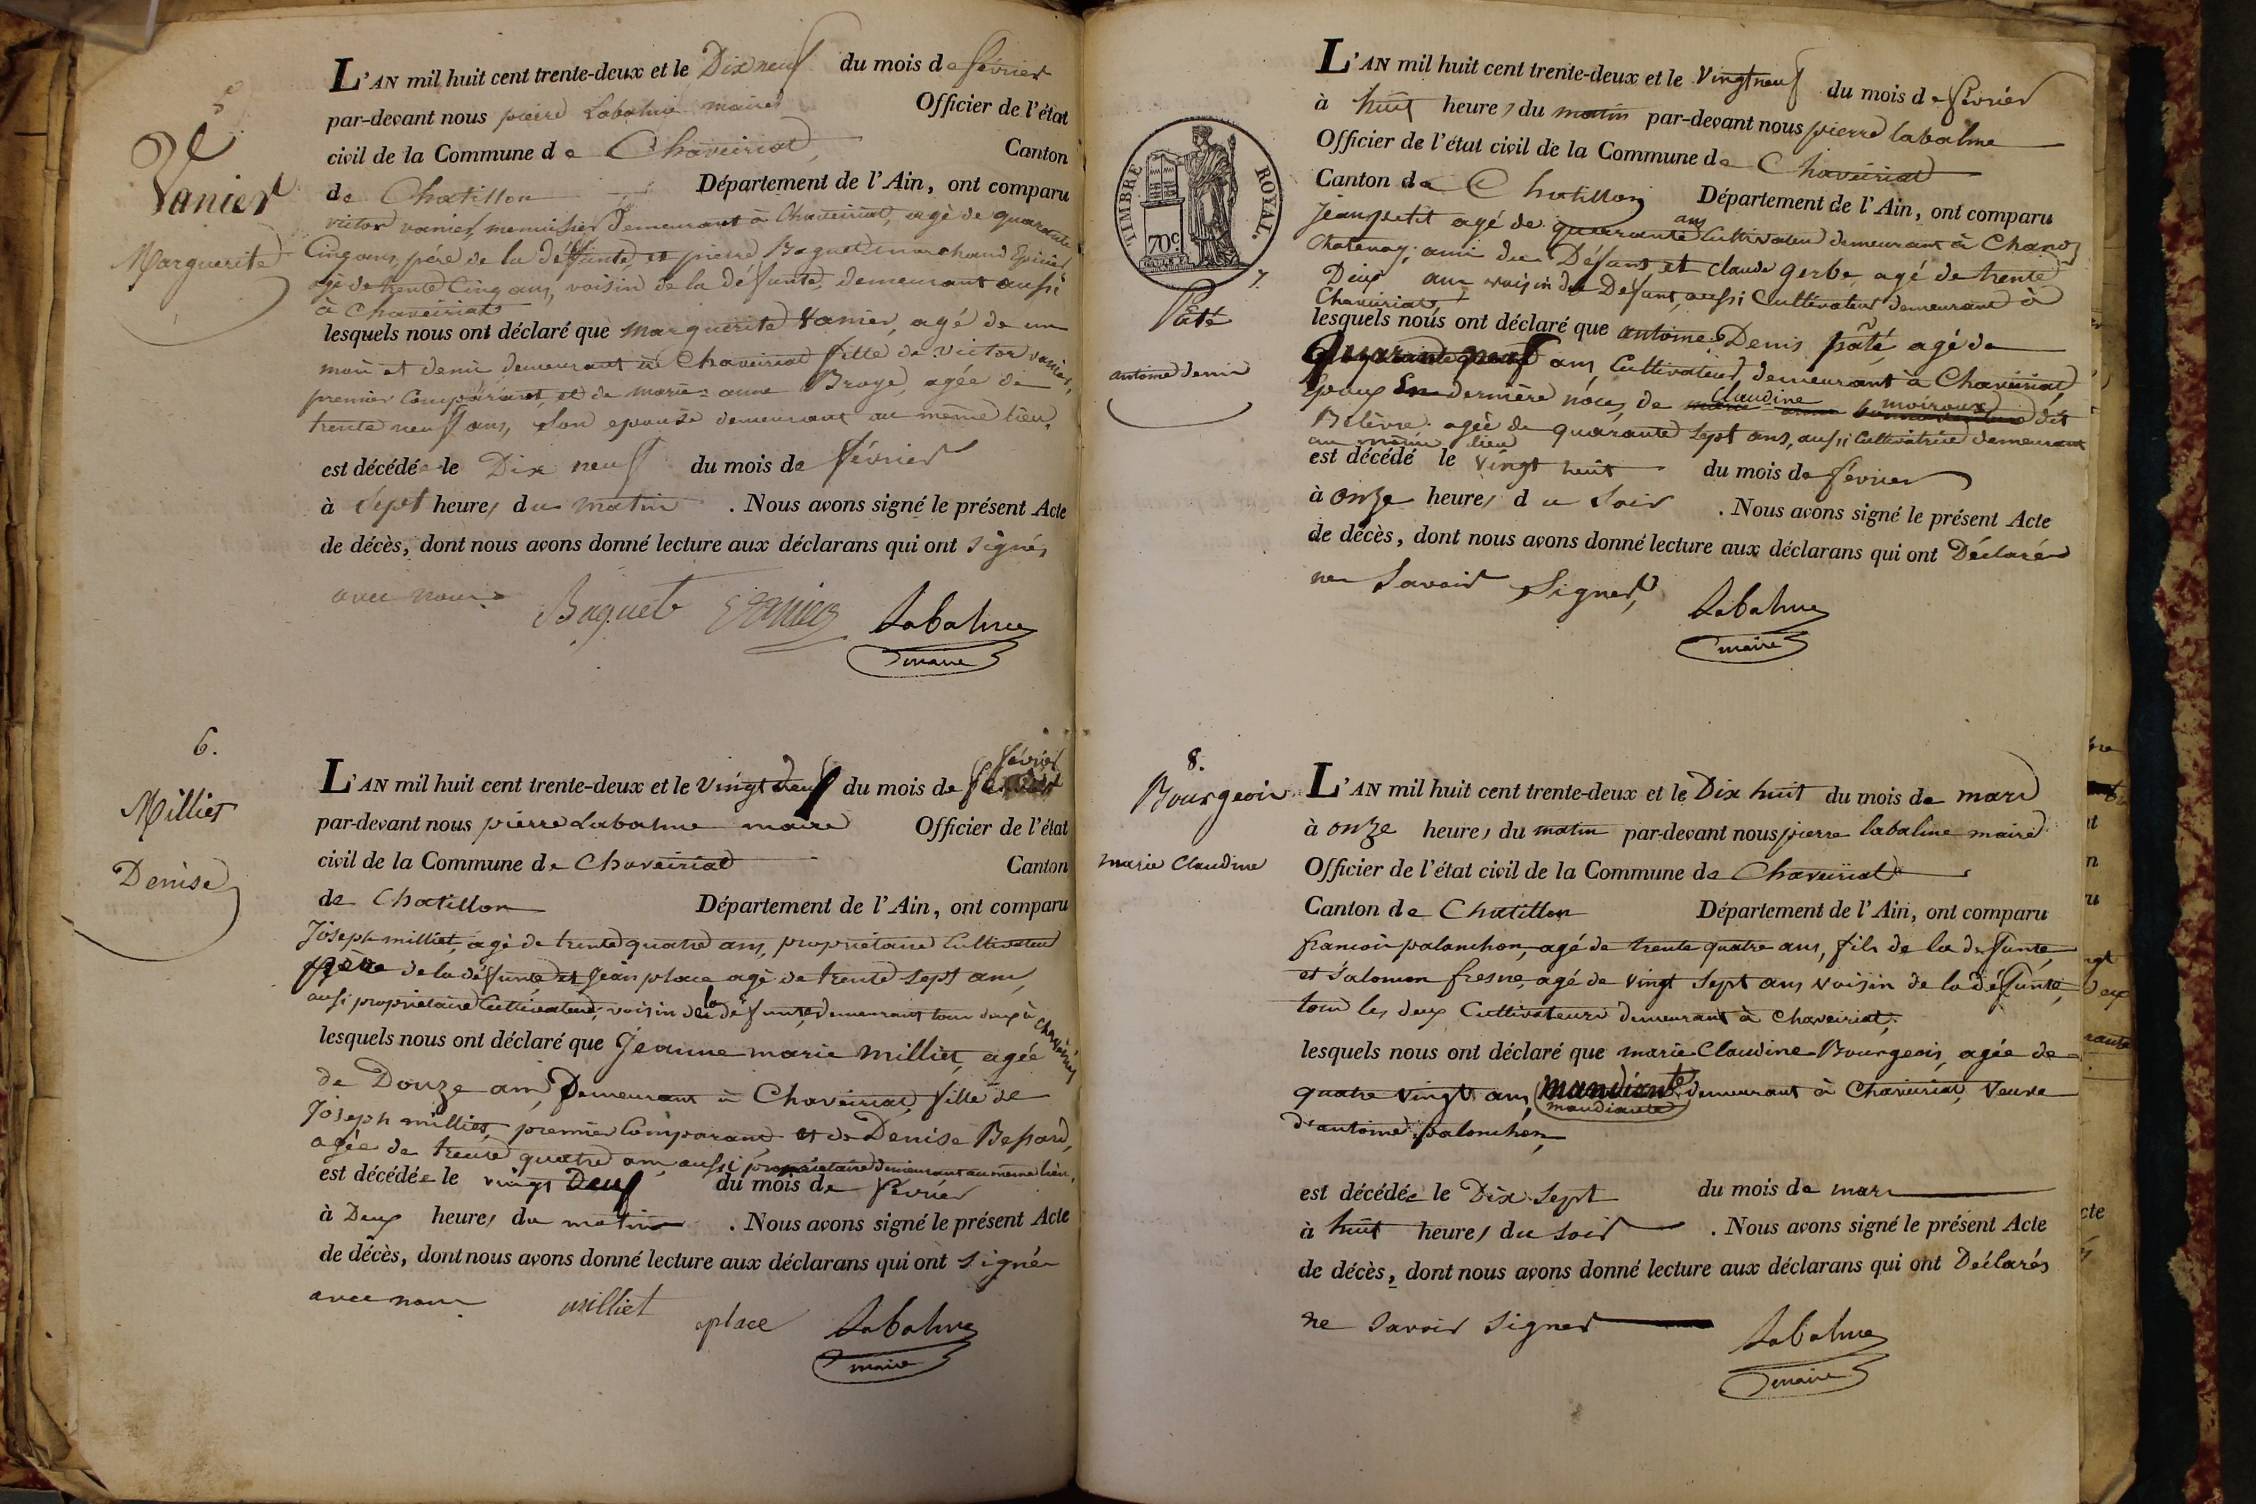 5e
Vanier
Marguerite
L'AN mil huit cent trente-deux et le Dix neuf du mois de février
par-devant nous pierre Labalme maire Officier de l'état
civil de la Commune de Chaveiriat Canton
de Chatillon Département de l'Ain, ont comparu
victor vanier, menuisier Demeurant à Chaveiriat, agé de quarante
Cinq ans, père de la défunte et pierre Baquet marchand Epicier
agé de trente Cinq ans, voisin de la défunte, demeurant aussi
à Chaveiriat
lesquels nous ont déclaré que Marguerite Vanier, agé de un
mois et demi demeurant à Chaveiriat fille de victor vanier,
premier Comparant, et de marie-anne Broye, agée de
trente neuf ans, son epouse demeurant au même lieu,
est décédée le Dix neuf du mois de février
à sept heures du matin . Nous avons signé le présent Acte
de décès, dont nous avons donné lecture aux déclarans qui ont signés
avec nous.
Baquet Vanier Labalme
maire
6.
Milliet
Denise
L'AN mil huit cent trente-deux et le Vingt deuf du mois de février
par-devant nous pierre Labalme maire Officier de l'état
civil de la Commune de Chaveiriat Canton
de Chatillon Département de l'Ain, ont comparu
Joseph milliet, agé de trente quatre ans, propriétaire Cultivateur
père de la défunte et Jean place agé de trente sept ans,
aussi propriétaire Cultivateur, voisin de la défunte, demeurant tous deux à Chaveiriat
lesquels nous ont déclaré que Jeanne marie milliet, agée
de Douze ans, Demeurant à Chaveiriat, fille de
Joseph milliet, premier Comparant et de Denise Bessard,
agée de trente quatre ans aussi propriétaire demeurant au même lieu,
est décédée le vingt Deuf du mois de février
à Deux heures du matin . Nous avons signé le présent Acte
de décès, dont nous avons donné lecture aux déclarans qui ont signés
avec nous milliet place Labalme
maire
TIMBRE ROYAL.
70c
7.
Pâté
antoine denis
L'AN mil huit cent trente-deux et le Vingt neuf du mois de février
à huit heures du matin par-devant nous pierre labalme
Officier de l'état civil de la Commune de Chaveiriat
Canton de Chatillon Département de l'Ain, ont comparu
Jean petit agé de quarante ans Cultivateur demeurant à Chanoz
Chatenay, ami du Défunt, et Claude gerbe, agé de trente
Deux ans voisin du Défunt, aussi Cultivateur demeurant à
Chaveiriat,
lesquels nous ont déclaré que antoine Denis pâté agé de
quarante neuf ans, Cultivateur demeurant à Chaveiriat,
Epoux En dernière nôces de Claudine moiroux dit
Belèvre, agée de quarante sept ans, aussi Cultivatrice demeurant
au même lieu
est décédé le vingt huit du mois de février
à onze heures du soir . Nous avons signé le présent Acte
de décès, dont nous avons donné lecture aux déclarans qui ont Déclarés
ne savoir signer, Labalme
maire
8.
Bourgeois
marie Claudine
L'AN mil huit cent trente-deux et le Dix huit du mois de mars
à onze heures du matin par-devant nous pierre labalme maire
Officier de l'état civil de la Commune de Chaveiriat
Canton de Chatillon Département de l'Ain, ont comparu
francois palanchon, agé de trente quatre ans, fils de la défunte,
et salomon fresne, agé de vingt sept ans voisin de la défunte,
tous les deux Cultivateurs demeurant à Chaveiriat,
lesquels nous ont déclaré que marie Claudine Bourgeois, agée de
quatre vingt ans, mandiante demeurant à Chaveiriat, Veuve
mandiante
d'antoine palanchon,
est décédée le Dix sept du mois de mars
à huit heures du soir . Nous avons signé le présent Acte
de décès, dont nous avons donné lecture aux déclarans qui ont Déclarés
ne savoir signer Labalme
maire